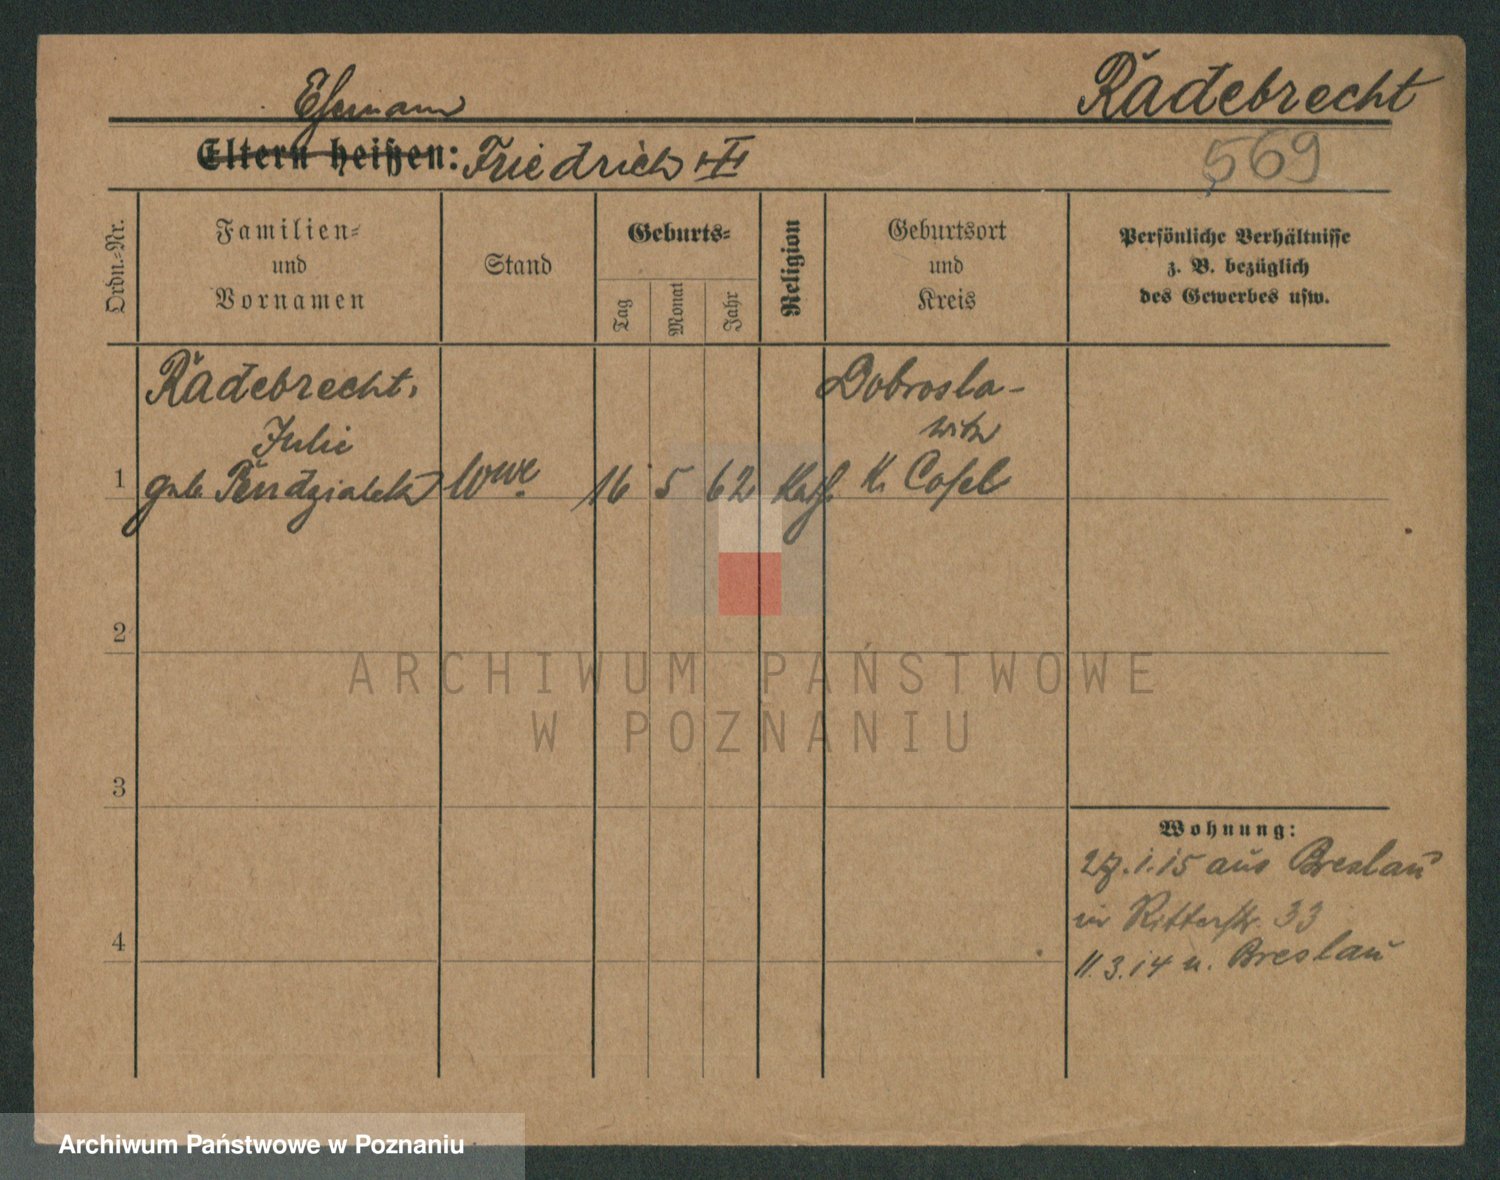 Rädebrecht
Ehemann
Eltern heißen: Friedrich
569
Ordn.-Nr.
Familien-
und
Vornamen
Stand
Geburts-
Tag
Monat
Jahr
Religion
Geburtsort
und
Kreis
Persönliche Verhältnisse
z. B. bezüglich
des Gewerbes usw.
Rädebrecht,
Julie
1 geb. Wwe. 16 5 62 Kath. K. Cosel
Dobrosla-
witz
2
3
4
Wohnung:
27.1.15 aus Breslau
in Ritterstr. 33
11.3.14 n. Breslau
ARCHIWUM PAŃSTWOWE
W POZNANIU
Archiwum Państwowe w Poznaniu